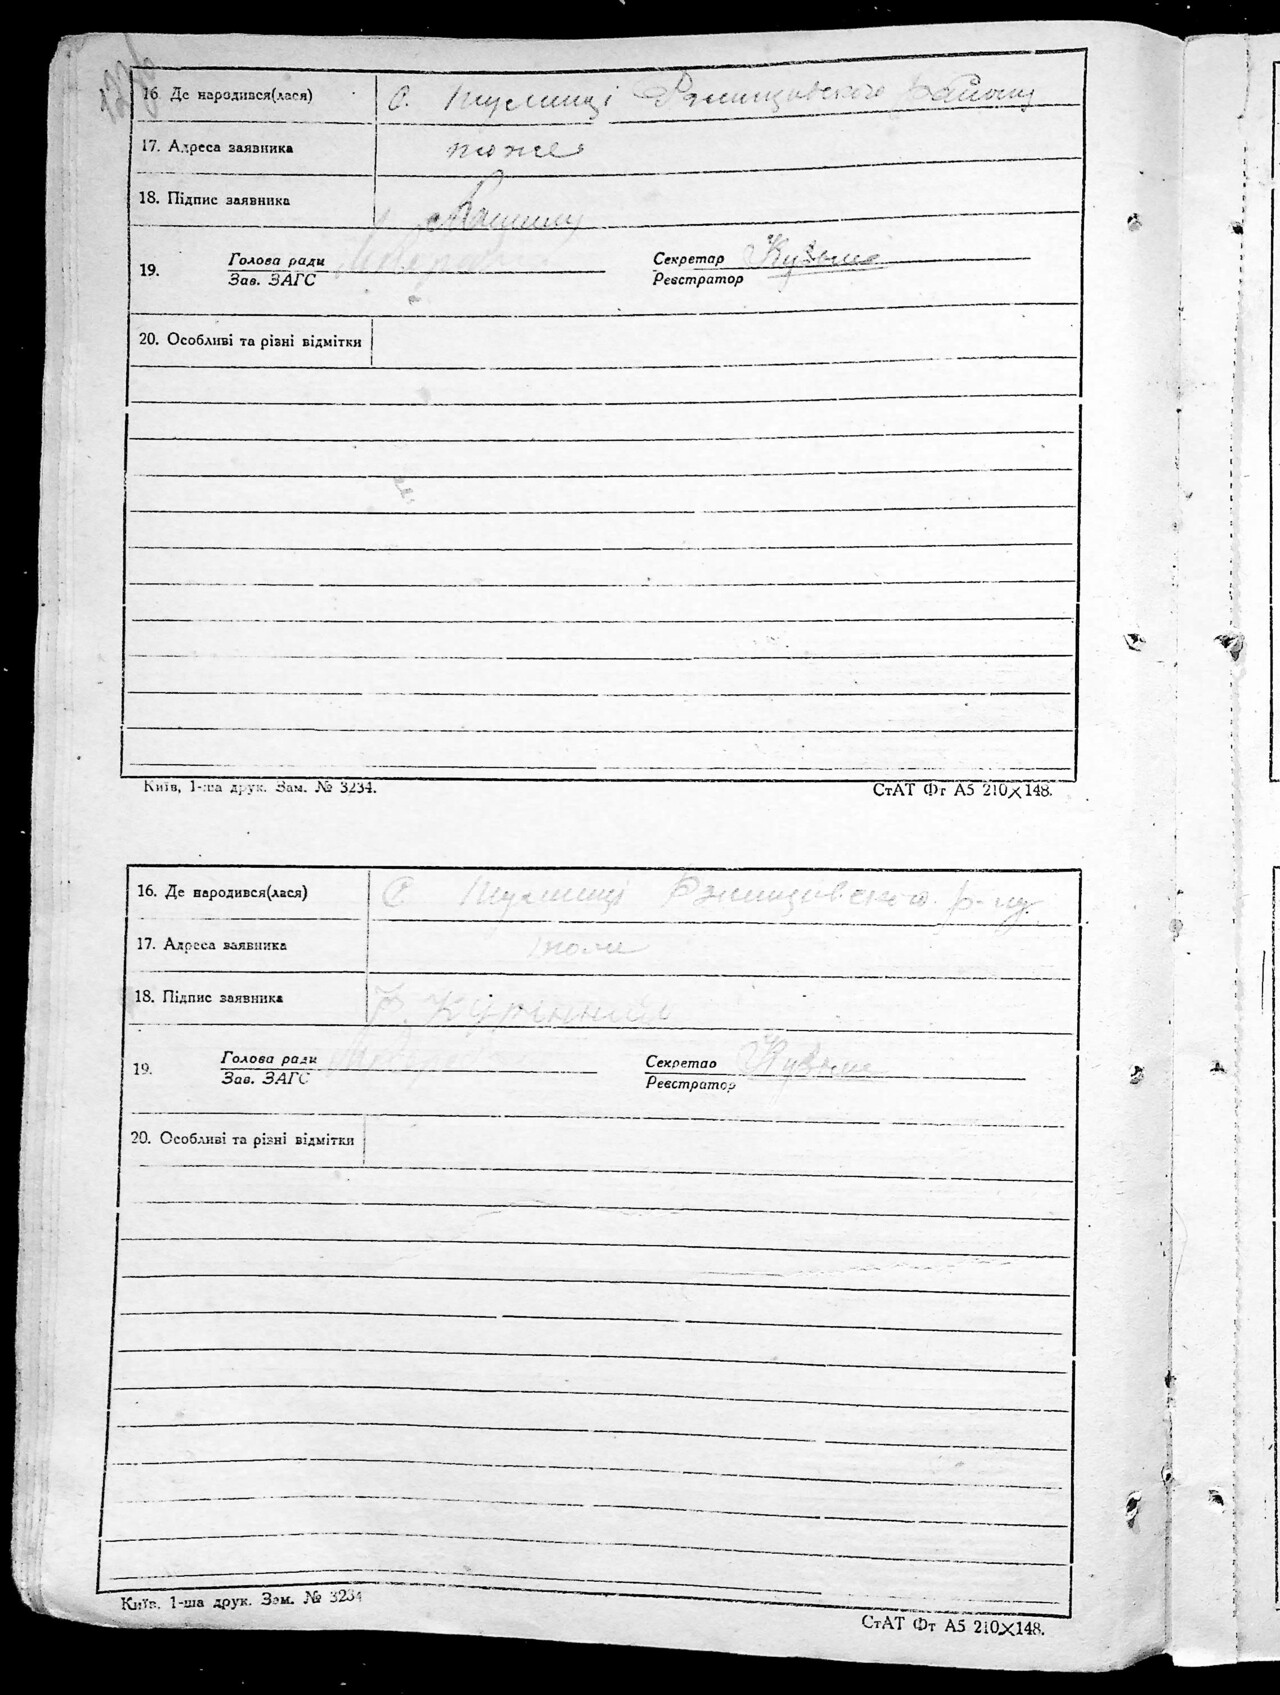 16. Де народився(лася) С. Тулинці Ржищовского району
17. Адреса заявника тоже
18. Підпис заявника
19. Голова ради Секретар Кузьме
Зав. ЗАГС Реєстратор
20. Особливі та різні відмітки
Київ, 1-ша друк. Зам. № 3234. СтАТ Фт А5 210×148.
16. Де народився(лася) С. Тулинці Ржищовского р-ну
17. Адреса заявника
18. Підпис заявника
19. Голова ради Секретар Кузьме
Зав. ЗАГС Реєстратор
20. Особливі та різні відмітки
Київ, 1-ша друк. Зам. № 3234 СтАТ Фт А5 210×148.